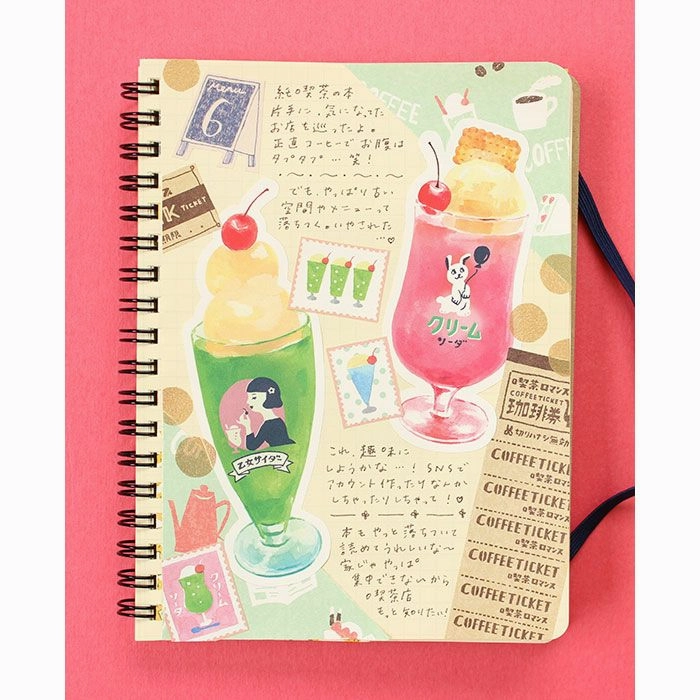 Menu
6
純喫茶の本
片手に、気になってた
お店を巡ったよ。
正直コーヒーでお腹は
タプタプ…笑!
でも、やっぱり古い
空間やメニューって
落ちつく。いやされた
…♡
COFFEE
COFF
TICKET
クリーム
ソーダ
乙女サイダー
これ、趣味に
しようかな…! SNSで
アカウント作ったりなんか
しちゃったりしちゃって!♡
本もやっと落ちついて
読めてうれしいな〜
家じゃやっぱ
集中できないから
喫茶店
もっと知りたい!
クリーム
ソーダ
喫茶ロマンス
COFFEETICKET
珈琲券
切リハナシ無効
COFFEETICKET
喫茶ロマンス
COFFEETICKET
喫茶ロマンス
COFFEETICKET
喫茶ロマンス
COFFEETICKET
喫茶ロマンス
COFFEETICKET
喫茶ロマンス
COFFEETICKET